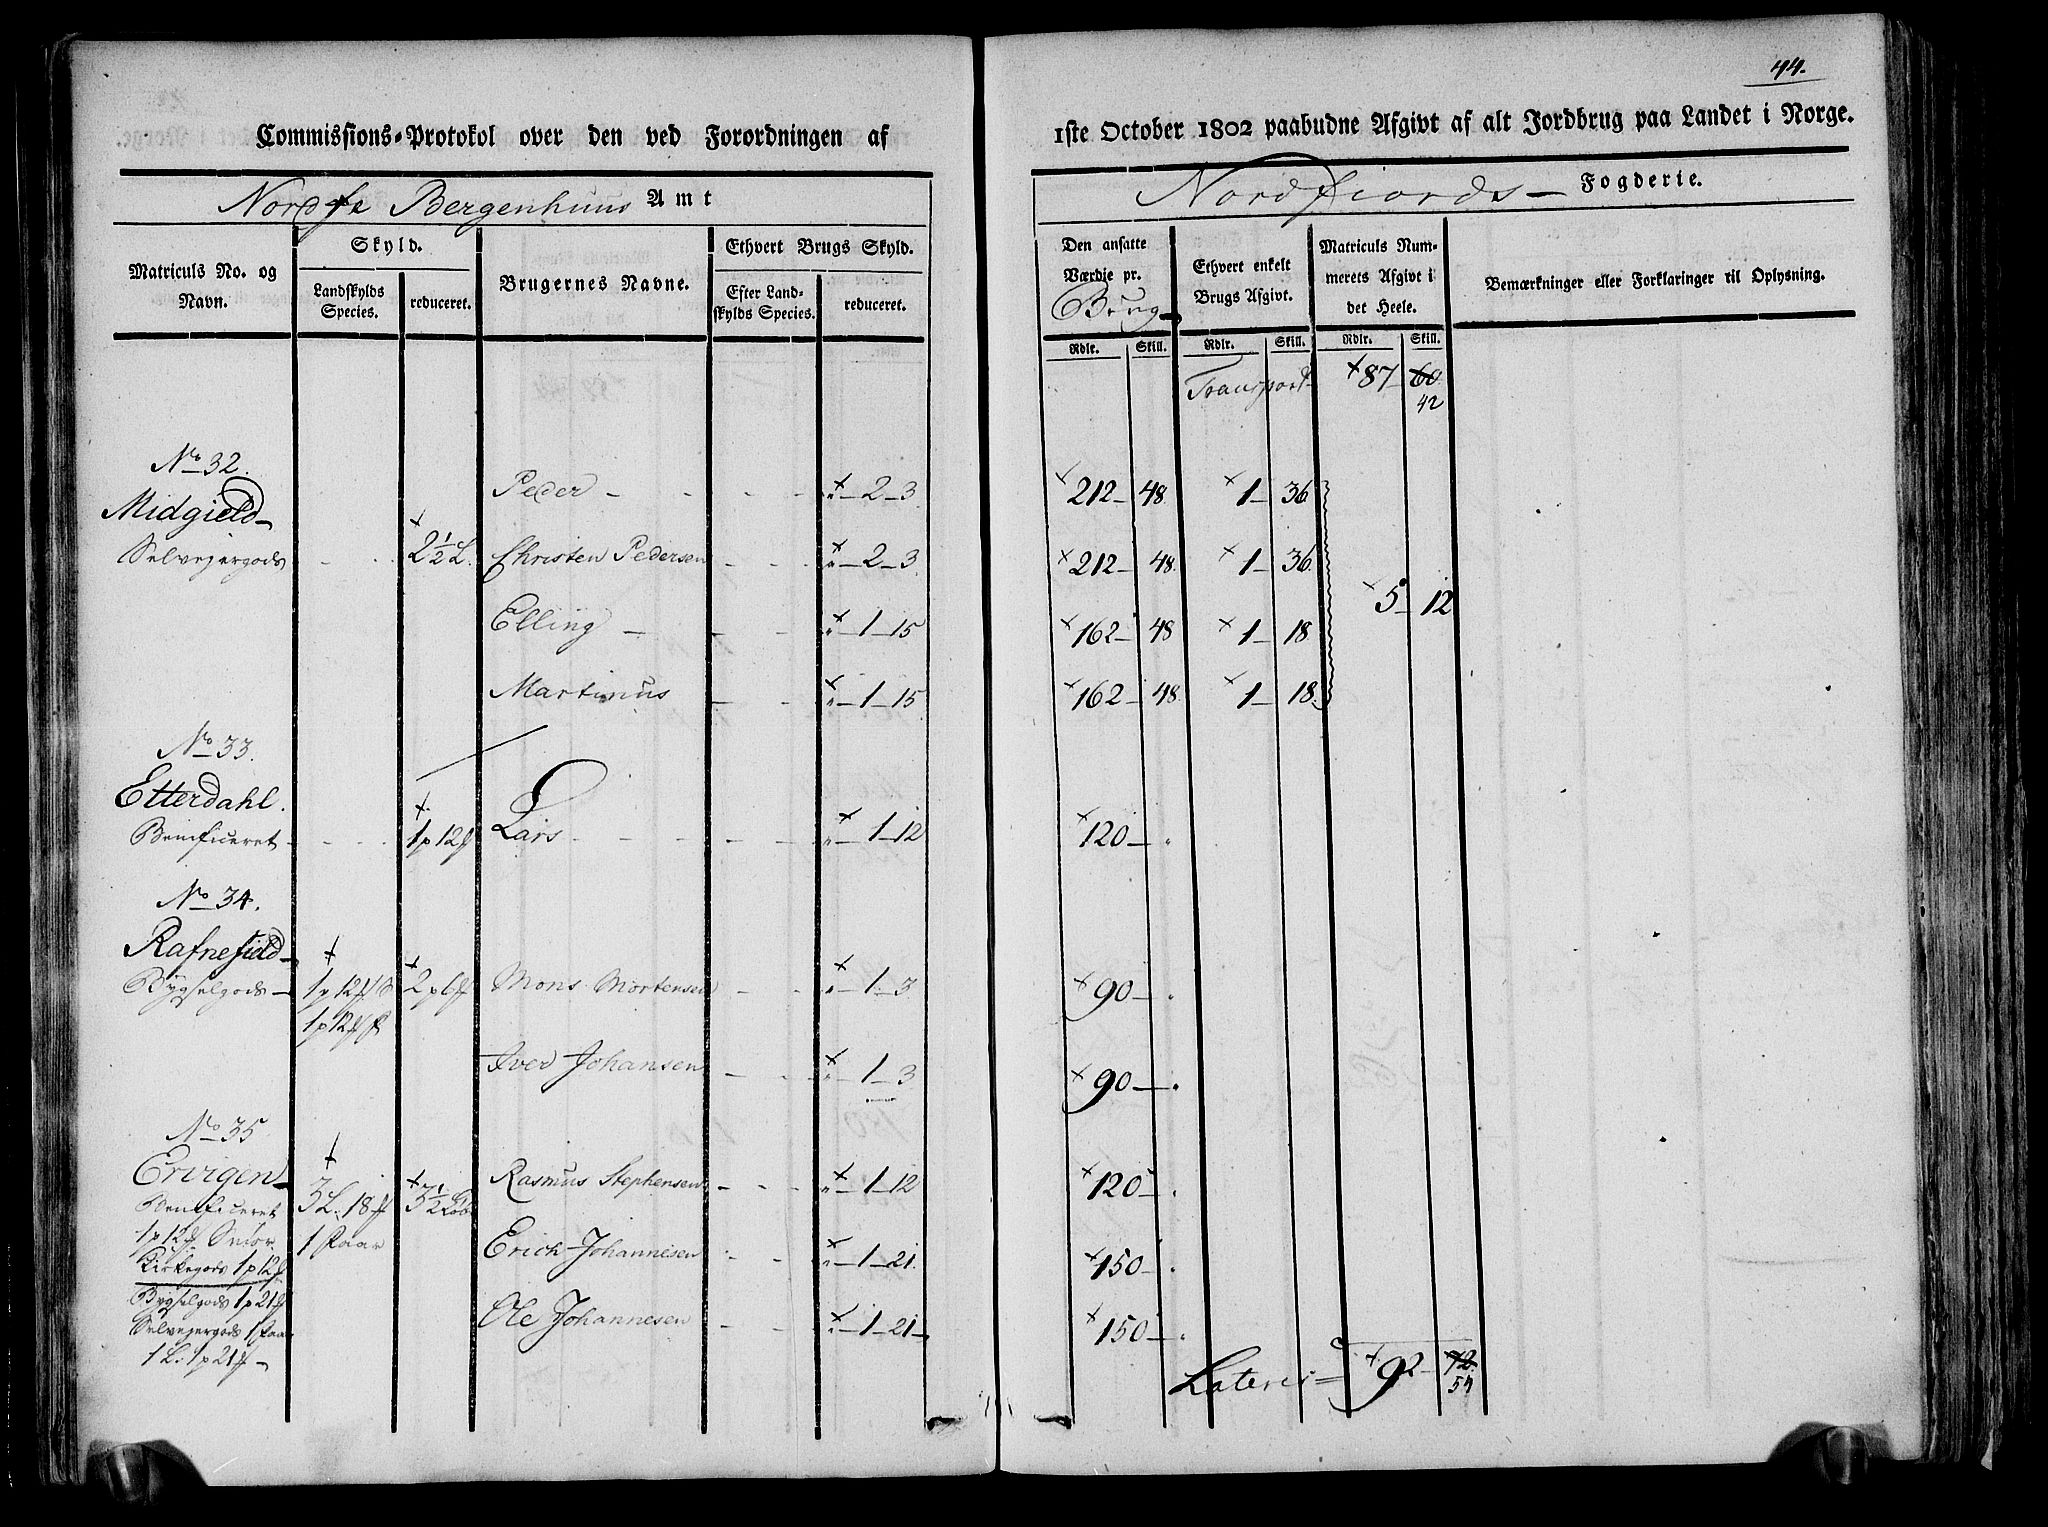 44.
Commissions-Protokol over den ved Forordningen af 1ste October 1802 paabudne Afgivt af alt Jordbrug paa Landet i Norge.
Nordre Bergenhuus Amt
Nordfiords Fogderie.
Matriculs No. og Navn.
Skyld.
Landskylds Species.
reduceret.
Brugernes Navne.
Ethvert Brugs Skyld.
Efter Landskylds Species.
reduceret.
Den ansatte Værdie pr. Brug
Ethvert enkelt Brugs Afgivt.
Matriculs Nummerets Afgivt i det Heele.
Bemærkninger eller Forklaringer til Oplysning.
Rdlr. Skill. Rdlr. Skill. Rdlr. Skill.
Transport 87 60
42
No 32.
Midgield
Selvejergods 2½ L.
Peder - - - " 2 3 212 48 1 36
Christen Pedersen - - " 2 3 212 48 1 36
5 12
Elling - - - " 1 15 162 48 1 18
Martinus - - " 1 15 162 48 1 18
No 33.
Etterdahl.
Beneficeret - - - 1 p 12 Lars - - - " 1 12 120 "
No 34.
Rafnefield
Bygselgods 1 p 12 2 p 6 Mons Mortensen - - " 1 3 90 "
1 p 12
Iver Johansen - - " 1 3 90 "
No 35
Ervigen
Beneficeret 3 L. 18 3½ Rasmus Stephensen - - " 1 12 120 "
1 p 12 Smør 1 Faar
Kirkegods 1 p 12 Erich Johannesen - - " 1 21 150 "
Bygselgods 1 p 21
Selvejergods 1 Faar Ole Johannesen - - " 1 21 150 "
1 L. 1 p 21
Lateris 92 72
54